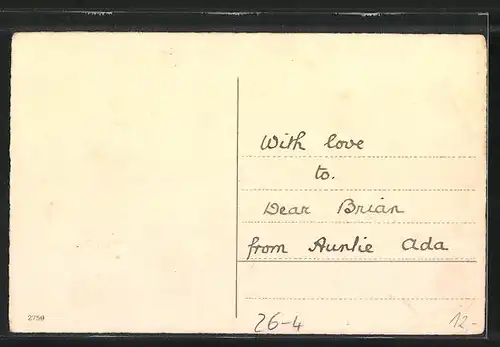 With love
to.
Dear Brian
from Auntie Ada
2759
26-4
12.-